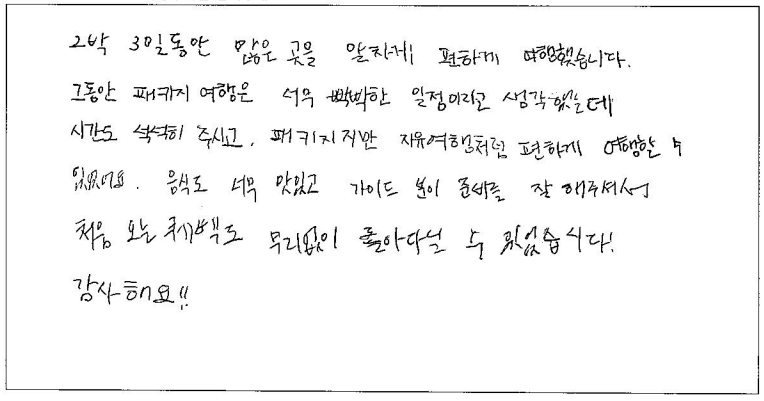 2박 3일동안 많은 곳을 알차게 편하게 여행했습니다.
그동안 패키지 여행은 너무 빡빡한 일정이라고 생각했는데
시간도 넉넉히 주시고, 패키지지만 자유여행처럼 편하게 여행할 수
있었어요. 음식도 너무 맛있고 가이드 분이 준비를 잘 해주셔서
처음 오는 퀘백도 무리없이 돌아다닐 수 있었습니다!
감사해요!!